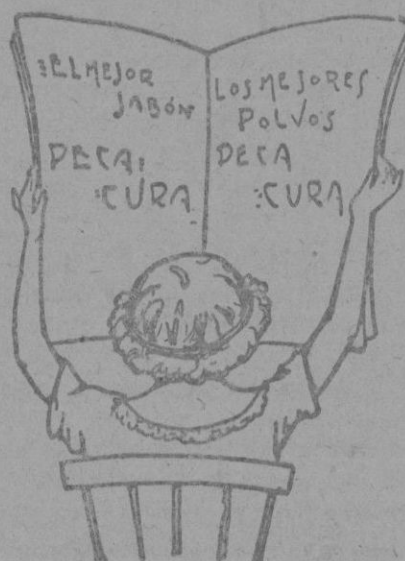 :EL MEJOR
JABÓN
PECA,
:CURA
LOS MEJORES
POLVOS
PECA
:CURA